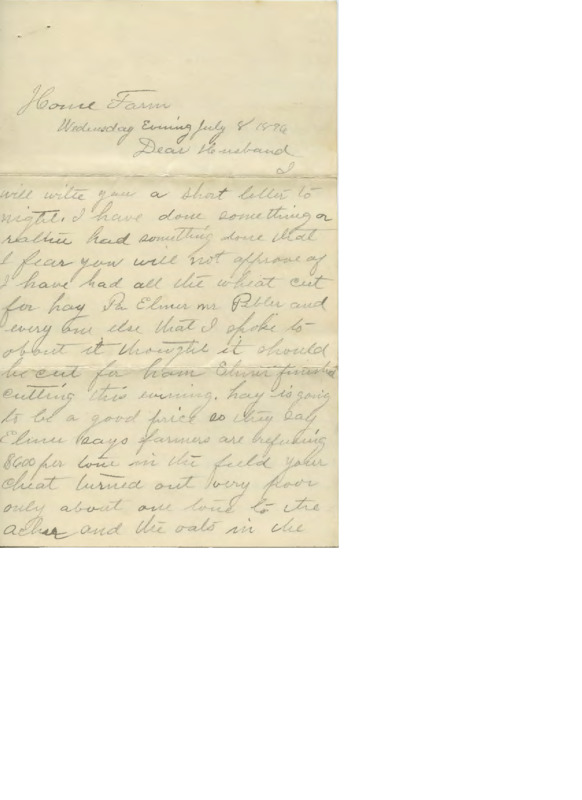 Home Farm
Wednesday Evning July 8 1896
Dear Husband
I
will write you a short letter to
night. I have done something or
rathe had something done that
I fear you will not approve of
I have had all the wheat cut
for hay Pa Elmer mr and
every one else that I spoke to
about it thought it should
be cut for Elmer finished
cutting this evening. hay is going
to be a good price so they say
Elmer says farmers are refusing
$600 per tone in the field your
cheat turned out very poor
only about one tone to the
acher and the oats in the